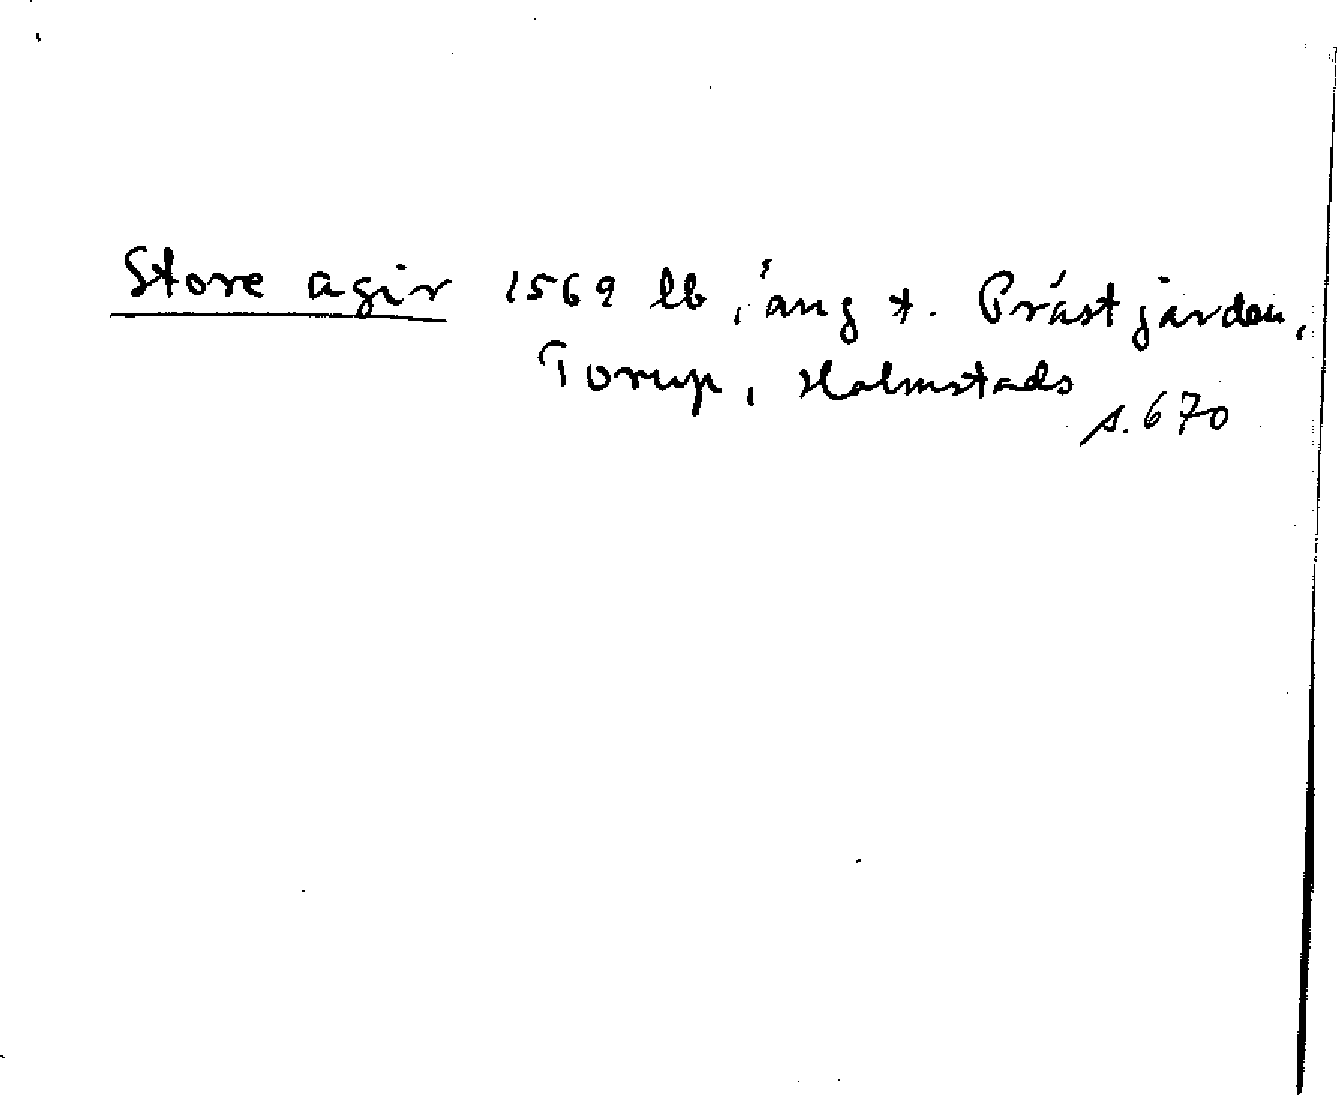 Store agir 1569 lb, äng t. Prästgården,
Torup, Halmstads
s. 670